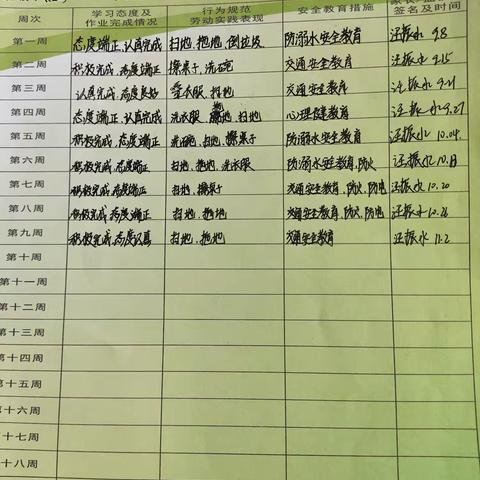 周次 学习态度及作业完成情况 行为规范劳动实践表现 安全教育措施 签名及时间
第一周 态度端正,认真完成 扫地、拖地、倒垃圾 防溺水安全教育 汪振水 9.8
第二周 积极完成,态度端正 擦桌子,洗碗 交通安全教育 汪振水 9.15
第三周 认真完成,态度良好 叠衣服、扫地 交通安全教育 汪振水 9.21
第四周 态度端正、认真完成 洗衣服、拖地、扫地 心理健康教育 汪振水 9.27
第五周 积极完成、态度端正 洗碗、扫地、擦桌子 防溺水安全教育 汪振水 10.04
第六周 积极完成,态度端正 扫地、拖地、洗衣服 防溺水安全教育、防火 汪振水 10.11
第七周 积极完成,态度端正 扫地、擦桌子 交通安全教育、防火、防电 汪振水 10.20
第八周 积极完成,态度端正 扫地、拖地 交通安全教育、防火、防电 汪振水 10.26
第九周 积极完成、态度认真 扫地、拖地 交通安全教育 汪振水 11.2
第十周
第十一周
第十二周
第十三周
第十四周
第十五周
第十六周
第十七周
第十八周